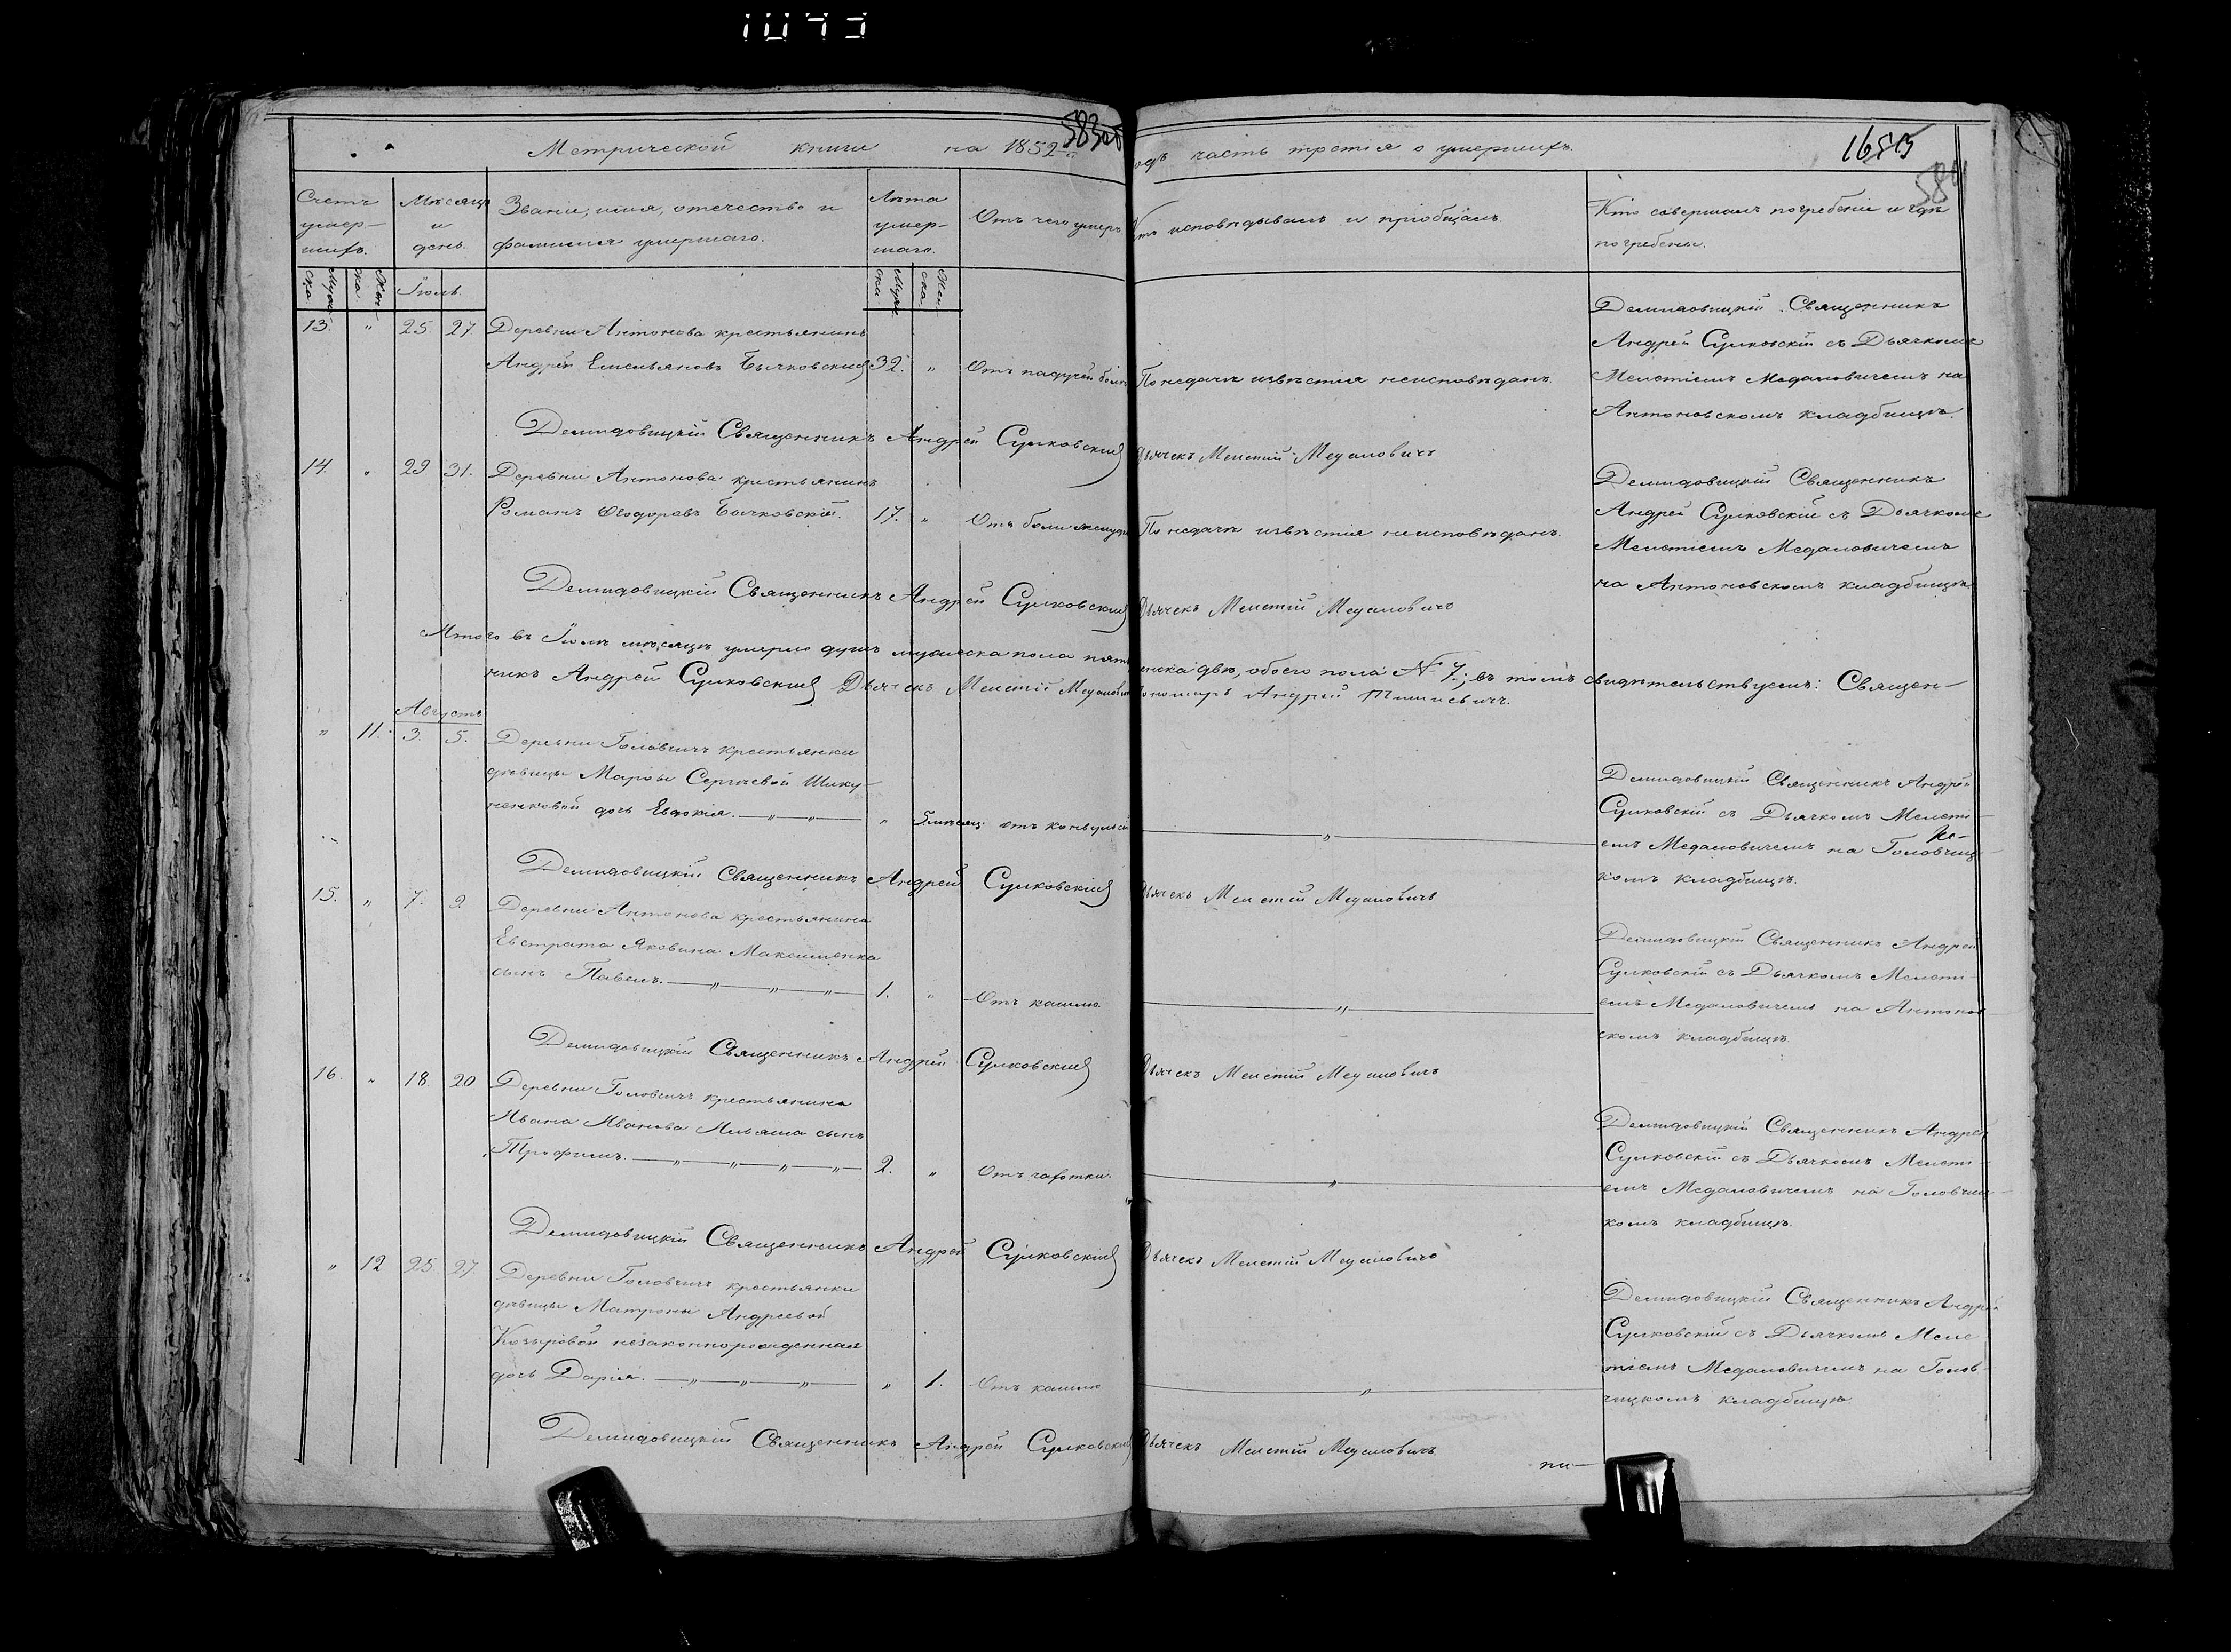 Метрической книги на 1852й
583об
одъ часть третiя о умершихъ.
584
Счетъ умер-шихъ.
Мѣсяцъ и день.
Званiе, имя, отечество и
фамилiя умершаго.
Лѣта умер-шаго.
Отъ чего умеръ
Кто исповѣдывалъ и прiобщалъ
Кто совершалъ погребенiе и гдѣ
погребены.
Муже-ска.
Жен-ска.
Iюль.
Муже-ска
Жен-ска.
13. " 25. 27. Деревни Антонова крестьянинъ
Андрей Емельяновъ Бычковскiй 32. " Отъ падучей болѣ По недачѣ извѣстiя неисповѣданъ.
Демидовицкiй Священникъ
Андрей Сулковскiй съ Дьячкомъ
Мелетiемъ Медаловичемъ на
Антоновскомъ кладбищѣ.
Демидовицкiй Священникъ Андрей Сулковскiй Дьячекъ Мелетiй Медаловичъ
14. " 29 31. Деревни Антонова крестьянинъ
Романъ Ѳеодоровъ Бычковскiй. 17. " Отъ боли желуд По недачѣ извѣстiя неисповѣданъ.
Демидовицкiй Священникъ
Андрей Сулковскiй съ Дьячкомъ
Мелетiемъ Медаловичемъ
на Антоновскомъ кладбищѣ
Демидовицкiй Священникъ Андрей Сулковскiй Дьячекъ Мелетiй Медаловичъ
Итого въ Iюлѣ мѣсяцѣ умерло душъ мужеска пола пять женска двѣ, обоего пола № 7; въ томъ свидѣтельствуемъ: Священ-
никъ Андрей Сулковскiй Дьячекъ Мелетiй Медалович Пономарь Андрей
Августъ
" 11. 3. 5. Деревни Головчичъ крестьянки
дѣвицы Марѳы Сергѣевой Шику-
ненковой дочь Евдокiя. " 5 мѣсяц. отъ конвульсi "
Демидовицкiй Священникъ Андрей
Сулковскiй съ Дьячкомъ Мелетi-
емъ Медаловичемъ на Головчиц-
комъ кладбищѣ.
Демидовицкiй Священникъ Андрей Сулковскiй Дьячекъ Мелетiй Медаловичъ
15. " 7. 9 Деревни Антонова крестьянина
Евстрата Яковина Максименка
сынъ Павелъ. 1. " Отъ кашлю. "
Демидовицкiй Священникъ Андрей
Сулковскiй съ Дьячкомъ Мелетi-
емъ Медаловичемъ на Антонов-
скомъ кладбищѣ.
Демидовицкiй Священникъ Андрей Сулковскiй Дьячекъ Мелетiй Медаловичъ
16. " 18 20 Деревни Головчичъ крестьянина
Ивана Иванова Ильяша сынъ
Трофимъ. 2. " Отъ чахотки. "
Демидовицкiй Священникъ Андрей
Сулковскiй съ Дьячкомъ Мелетi-
емъ Медаловичемъ на Головчиц-
комъ кладбищѣ.
Демидовицкiй Священникъ Андрей Сулковскiй Дьячекъ Мелетiй Медаловичъ
" 12 25. 27 Деревни Головчичъ крестьянки
дѣвицы Матроны Андреевой
Козыровой незаконнорожденная
дочь Дарiя. " 1. Отъ кашлю "
Демидовицкiй Священникъ Андрей
Сулковскiй съ Дьячкомъ Меле-
тiемъ Медаловичемъ на Голов-
чицкомъ кладбищѣ.
Демидовицкiй Священникъ Андрей Сулковскiй Дьячекъ Мелетiй Медаловичъ.